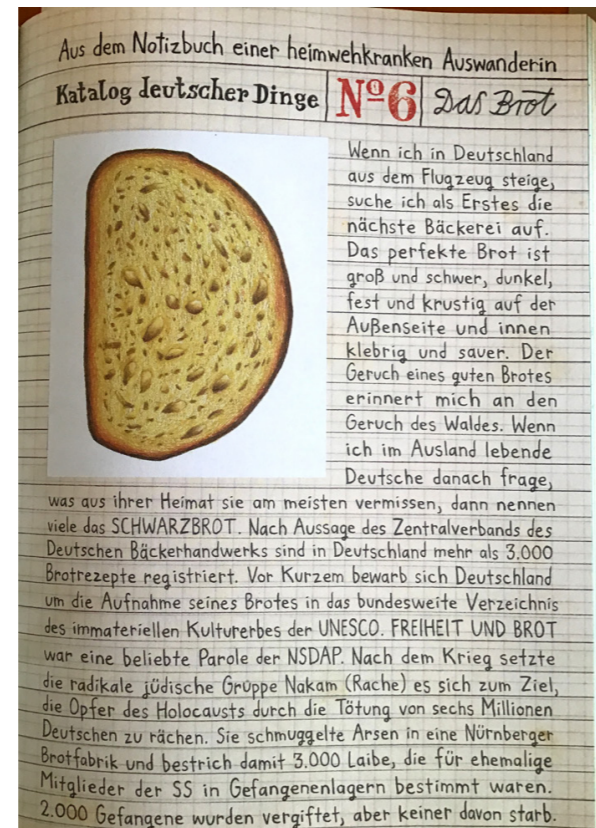 Aus dem Notizbuch einer heimwehkranken Auswanderin
Katalog deutscher Dinge
Nº6
Das Brot
Wenn ich in Deutschland
aus dem Flugzeug steige,
suche ich als Erstes die
nächste Bäckerei auf.
Das perfekte Brot ist
groß und schwer, dunkel,
fest und krustig auf der
Außenseite und innen
klebrig und sauer. Der
Geruch eines guten Brotes
erinnert mich an den
Geruch des Waldes. Wenn
ich im Ausland lebende
Deutsche danach frage,
was aus ihrer Heimat sie am meisten vermissen, dann nennen
viele das SCHWARZBROT. Nach Aussage des Zentralverbands des
Deutschen Bäckerhandwerks sind in Deutschland mehr als 3.000
Brotrezepte registriert. Vor Kurzem bewarb sich Deutschland
um die Aufnahme seines Brotes in das bundesweite Verzeichnis
des immateriellen Kulturerbes der UNESCO. FREIHEIT UND BROT
war eine beliebte Parole der NSDAP. Nach dem Krieg setzte
die radikale jüdische Gruppe Nakam (Rache) es sich zum Ziel,
die Opfer des Holocausts durch die Tötung von sechs Millionen
Deutschen zu rächen. Sie schmuggelte Arsen in eine Nürnberger
Brotfabrik und bestrich damit 3.000 Laibe, die für ehemalige
Mitglieder der SS in Gefangenenlagern bestimmt waren.
2.000 Gefangene wurden vergiftet, aber keiner davon starb.